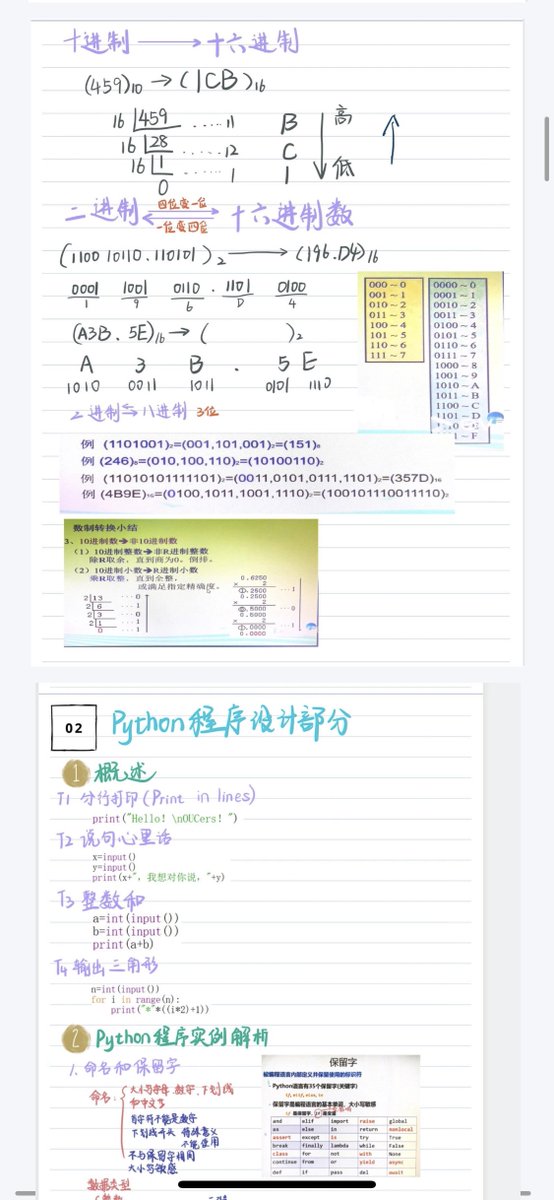 十进制 ⟶ 十六进制
(459)₁₀ → (1CB)₁₆
16 459 ……11 B 高
16 28 ……12 C
16 1 ……1 1 低
0
二进制 四位变一位 一位变四位 十六进制数
(1100 10110.110101)₂ ⟶ (196.D4)₁₆
0001 1001 0110 . 1101 0100
1 9 6 D 4
(A3B.5E)₁₆ → ( )₂
A 3 B . 5 E
1010 0011 1011 0101 1110
000~0
001~1
010~2
011~3
100~4
101~5
110~6
111~7
0000~0
0001~1
0010~2
0011~3
0100~4
0101~5
0110~6
0111~7
1000~8
1001~9
1010~A
1011~B
1100~C
1101~D
二进制⇆八进制 3位
例 (1101001)₂=(001,101,001)₂=(151)₈
例 (246)₈=(010,100,110)₂=(10100110)₂
例 (11010101111101)₂=(0011,0101,0111,1101)₂=(357D)₁₆
例 (4B9E)₁₆=(0100,1011,1001,1110)₂=(100101110011110)₂
数制转换小结
3、10进制数→非10进制数
(1) 10进制整数→非R进制整数
除R取余，直到商为0，倒排。
(2) 10进制小数→R进制小数
乘R取整，直到全整，
或满足指定精确度。
2 13 …0
2 6 …1
2 3 …0
2 1 …1
0 …1
0.6250
× 2
①.2500 …1
0.2500
× 2
⓪.5000 …0
0.5000
× 2
①.0000 …1
0.0000
02 Python程序设计部分
1 概述
T1 分行打印(Print in lines)
print("Hello! \nOUCers! ")
T2 说句心里话
x=input()
y=input()
print(x+", 我想对你说, "+y)
T3 整数和
a=int(input())
b=int(input())
print(a+b)
T4 输出三角形
n=int(input())
for i in range(n):
print("*"*((i*2)+1))
2 Python程序实例解析
1. 命名和保留字
命名: 大小写字母、数字、下划线
和中文等
首字符不能是数字
下划线开头 特殊意义
不能使用
不与保留字相同
大小写敏感
数据类型
保留字
被编程语言内部定义并保留使用的标识符
Python语言有35个保留字(关键字)
if, elif, else, in
保留字是编程语言的基本单词，大小写敏感
if 是保留字，If 是变量
and elif import raise global
as else in return nonlocal
assert except is try True
break finally lambda while False
class for not with None
continue from or yield async
def if pass del await